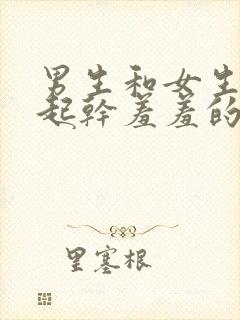 男生和女生
起幹羞羞的
里塞根